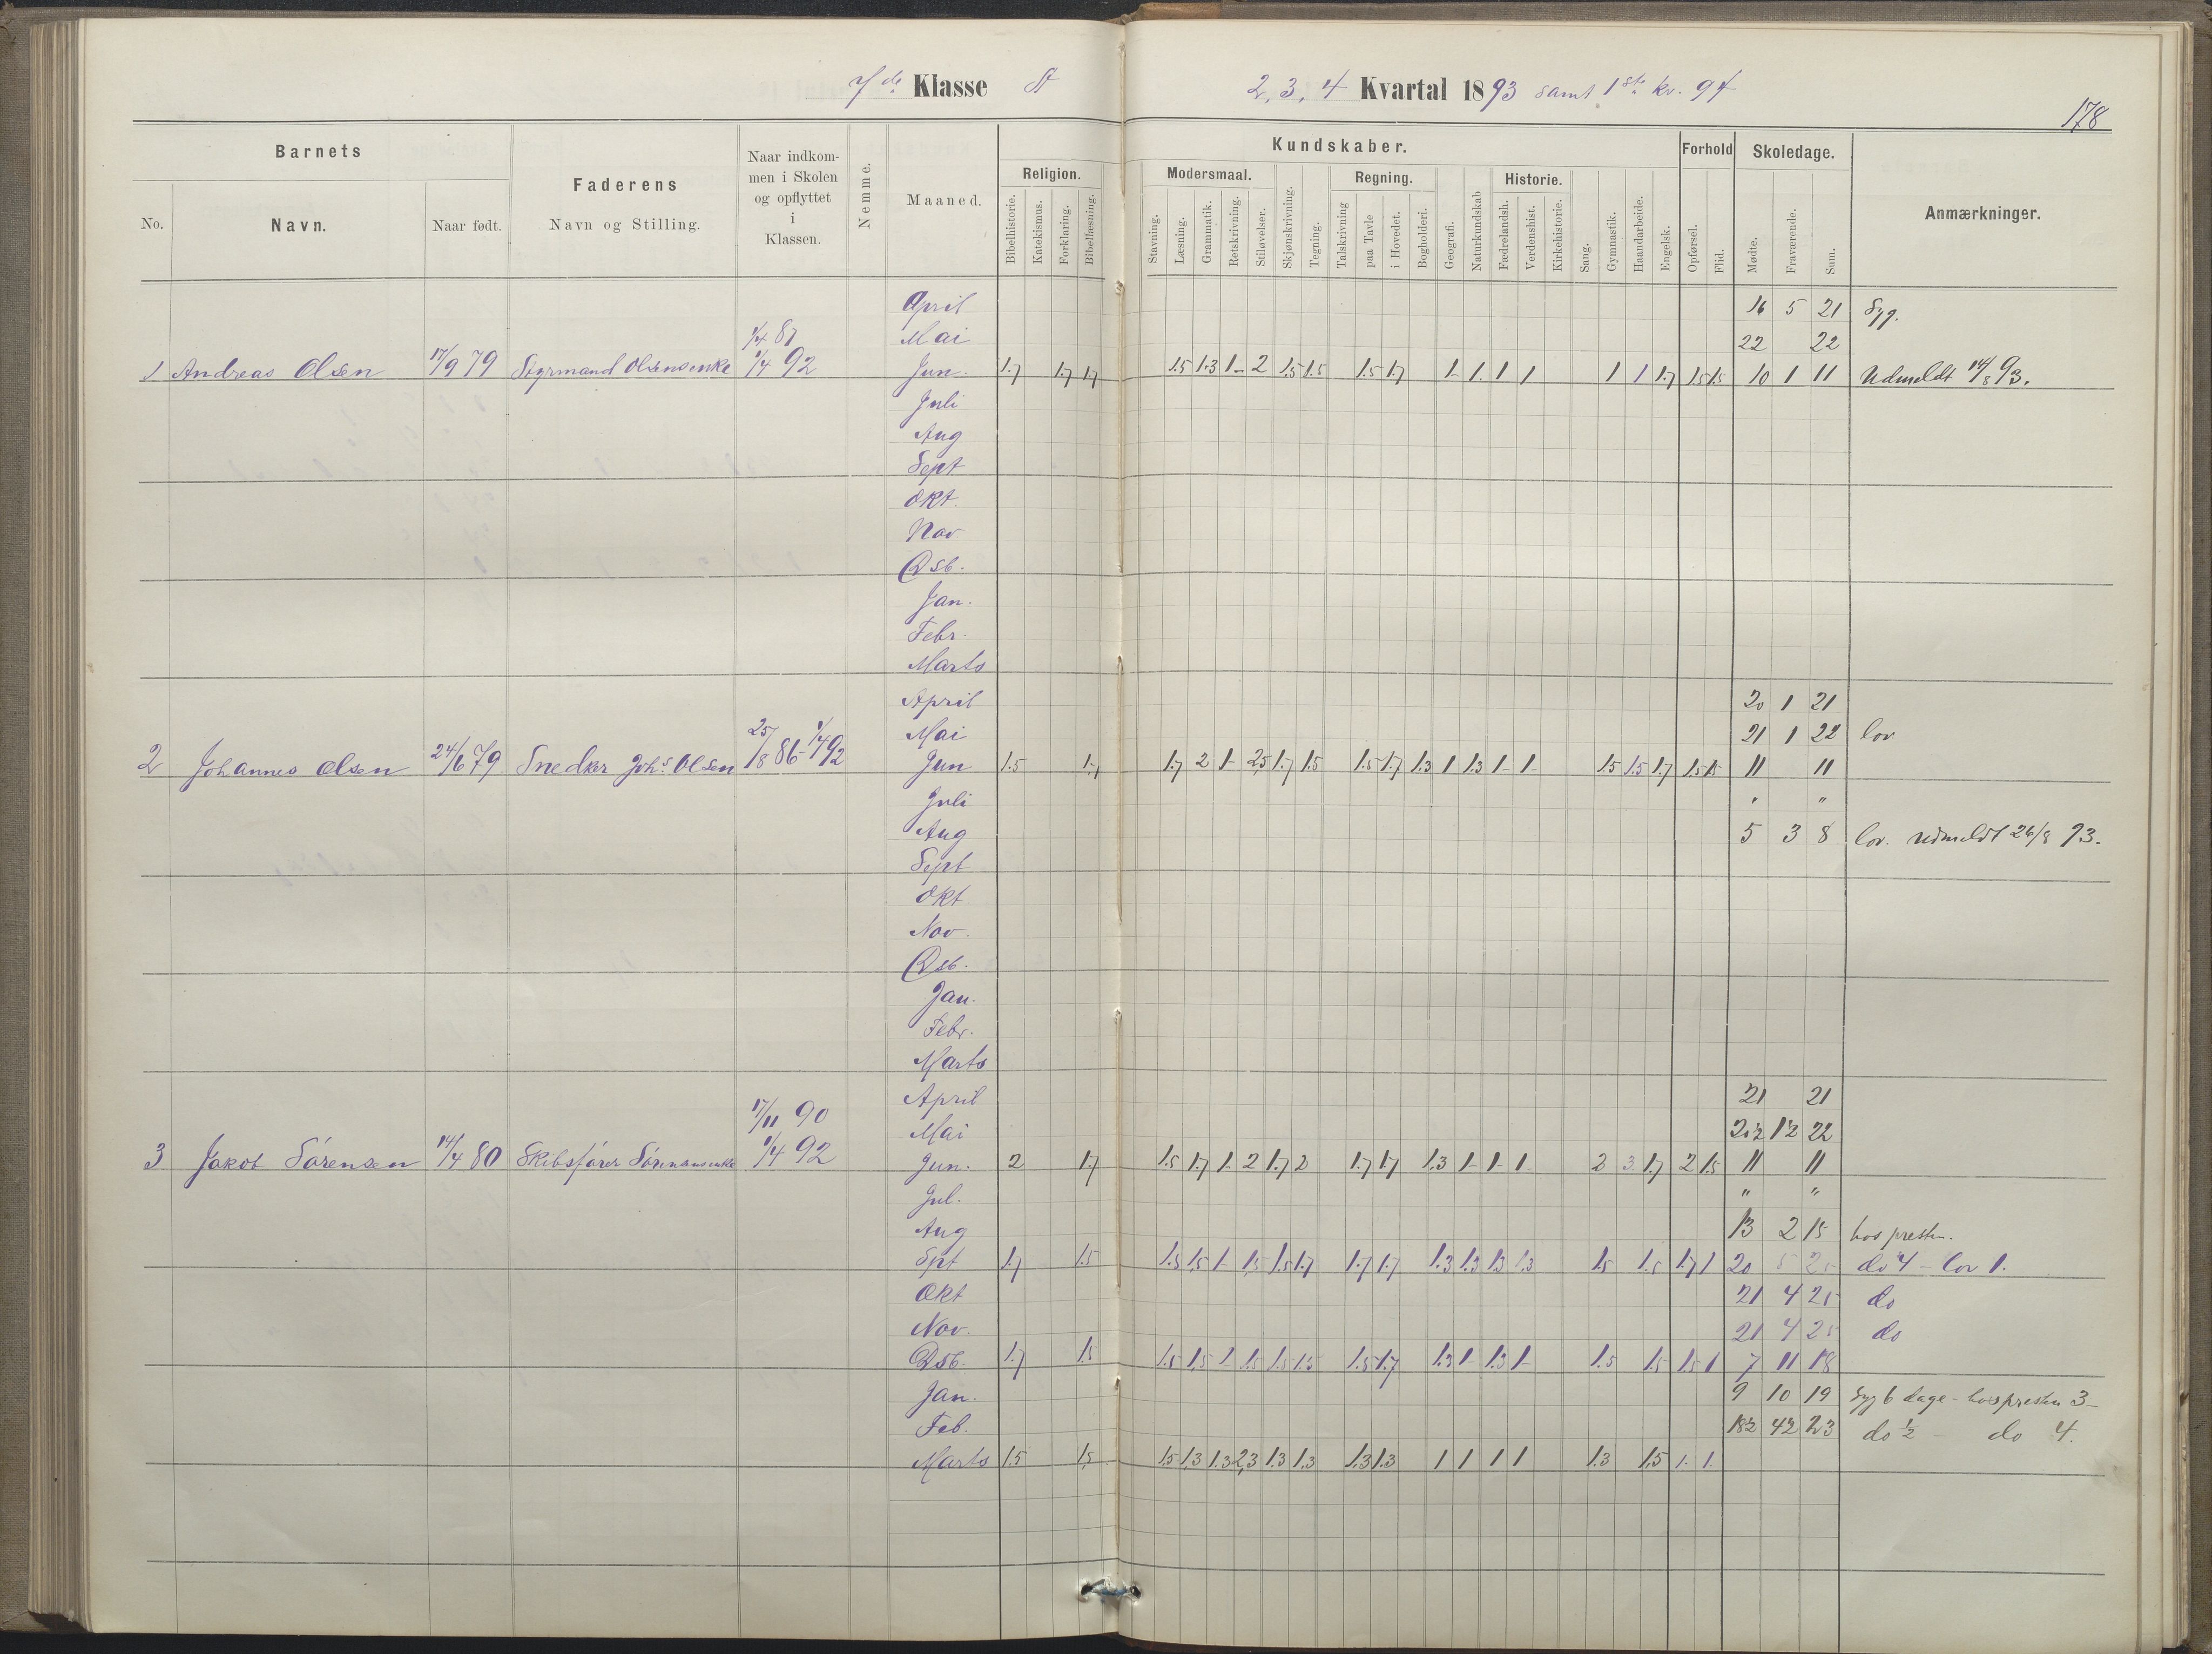 7de Klasse A 2, 3, 4 Kvartal 1893 samt 1ste kv. 94
178
Barnets
Faderens
Naar indkommen i Skolen og opflyttet i Klassen.
Nemme.
Maaned.
Kundskaber.
Forhold
Skoledage.
Anmærkninger.
No. Navn. Naar født. Navn og Stilling.
Religion. Modersmaal. Regning. Historie.
Bibelhistorie. Katekismus. Forklaring. Bibellæsning. Stavning. Læsning. Grammatik. Retskrivning. Stiløvelser. Skjønskrivning. Tegning. Talskrivning paa Tavle i Hovedet. Bogholderi. Geografi. Naturkundskab Fædrelandsh. Verdenshist. Kirkehistorie. Sang. Gymnastik. Haandarbeide. Engelsk. Opførsel. Flid. Mødte. Fraværende. Sum.
April 16 5 21 Syg.
1/4 87 Mai 22 22
1 Andreas Olsen 17/9 79 Styrmand Olsens enke 1/4 92 Jun. 1.7 1.7 1.7 1.5 1.3 1- 2 1.5 1.5 1.5 1.7 1- 1. 1 1 1 1 1.7 1.5 1.5 10 1 11 Udmeldt 14/8 93.
Juli
Aug
Sept
Okt.
Nov
Dsb.
Jan.
Febr.
Marts
April 20 1 21
Mai 21 1 22 lov
2 Johannes Olsen 24/6 79 Snedker Johs. Olsen 25/8 86 - 1/4 92 Jun 1.5 1.7 1.7 2 1- 2,5 1.7 1.5 1.5 1.7 1.3 1 1.3 1- 1- 1.5 1.5 1.7 1.5 1.5 11 11
Juli " "
Aug 5 3 8 lov. Udmeldt 26/8 93.
Sept
Okt
Nov.
Dsb.
Jan.
Febr.
Marts
April 21 21
17/11 90 Mai 20½ 1½ 22
3 Jakob Sørensen 14/4 80 Skibsfører Sørensens enke 1/4 92 Jun. 2 1.7 1.5 1.7 1. 2 1.7 2 1.7 1.7 1.3 1- 1- 1- 2 3. 1.7 2 1.5 11 11
Jul. " "
Aug 13 2 15 hos presten.
Spt 1.7 1.5 1.5 1.5 1- 1.5 1.5 1.7 1.7 1.7 1.3 1.3 1.3 1.3 1.5 1.5 1.7 1 20 5 25 do 4 - lov 1.
Okt 21 4 25 do
Nov. 21 4 25 do
Dsb. 1.7 1.5 1.5 1.5 1- 1.5 1.5 1.5 1.5 1.7 1.3 1- 1.3 1- 1.5 1.5 1.5 1 7 11 18
Jan. 9 10 19 Syg 6 dage - hos presten 3-
Feb. 18½ 4½ 23 do ½ - do 4.
Marts 1.5 1.5 1.5 1.3 1.3 2,3 1.3 1.3 1.3 1.3 1 1 1 1 1.3 1.5 1. 1.